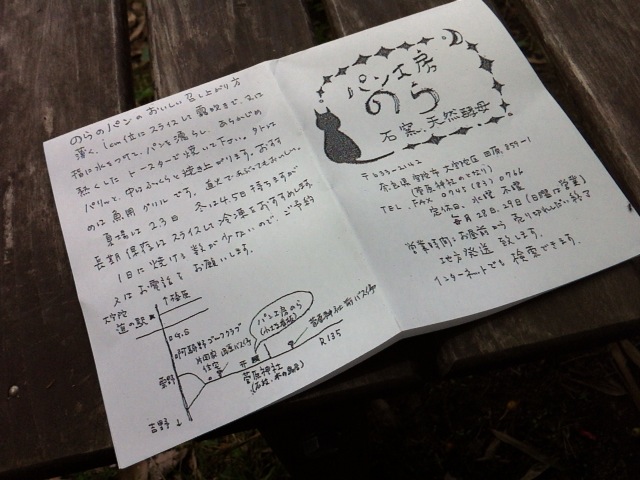 のらのパンのおいしい召し上がり方
薄く、1cm位にスライスして霧吹きで、又は
指に水をつけて、パンを濡らし、あらかじめ
熱くした トースターで焼いて下さい。外は
パリッと、中はふっくらと焼き上がります。おすす
めは魚用グリルです。蒸してみてもおいしい。
夏場は2、3日 冬は4、5日持ちますが
長期保存はスライスし冷凍をおすすめします。
1日に焼ける数が少ないので、ご予約
又はお電話でお願いします。
大宇陀
道の駅
↑榛原
阿騎野ゴーフクラブ
片岡家
住宅
パン工房のら
菅原神社前バス停
R135
菅原神社
吉野↓
パン工房
のら
石窯、天然酵母
〒633-2142
奈良県宇陀市大宇陀区田原859-1
(菅原神社のとなり)
TEL.FAX 0745(83)0966
定休日 火曜 木曜
毎月28日、29日(日曜は営業)
営業時間:お昼前から 売り切れしだい終了
地方発送 致します。
インターネットでも 検索できます。